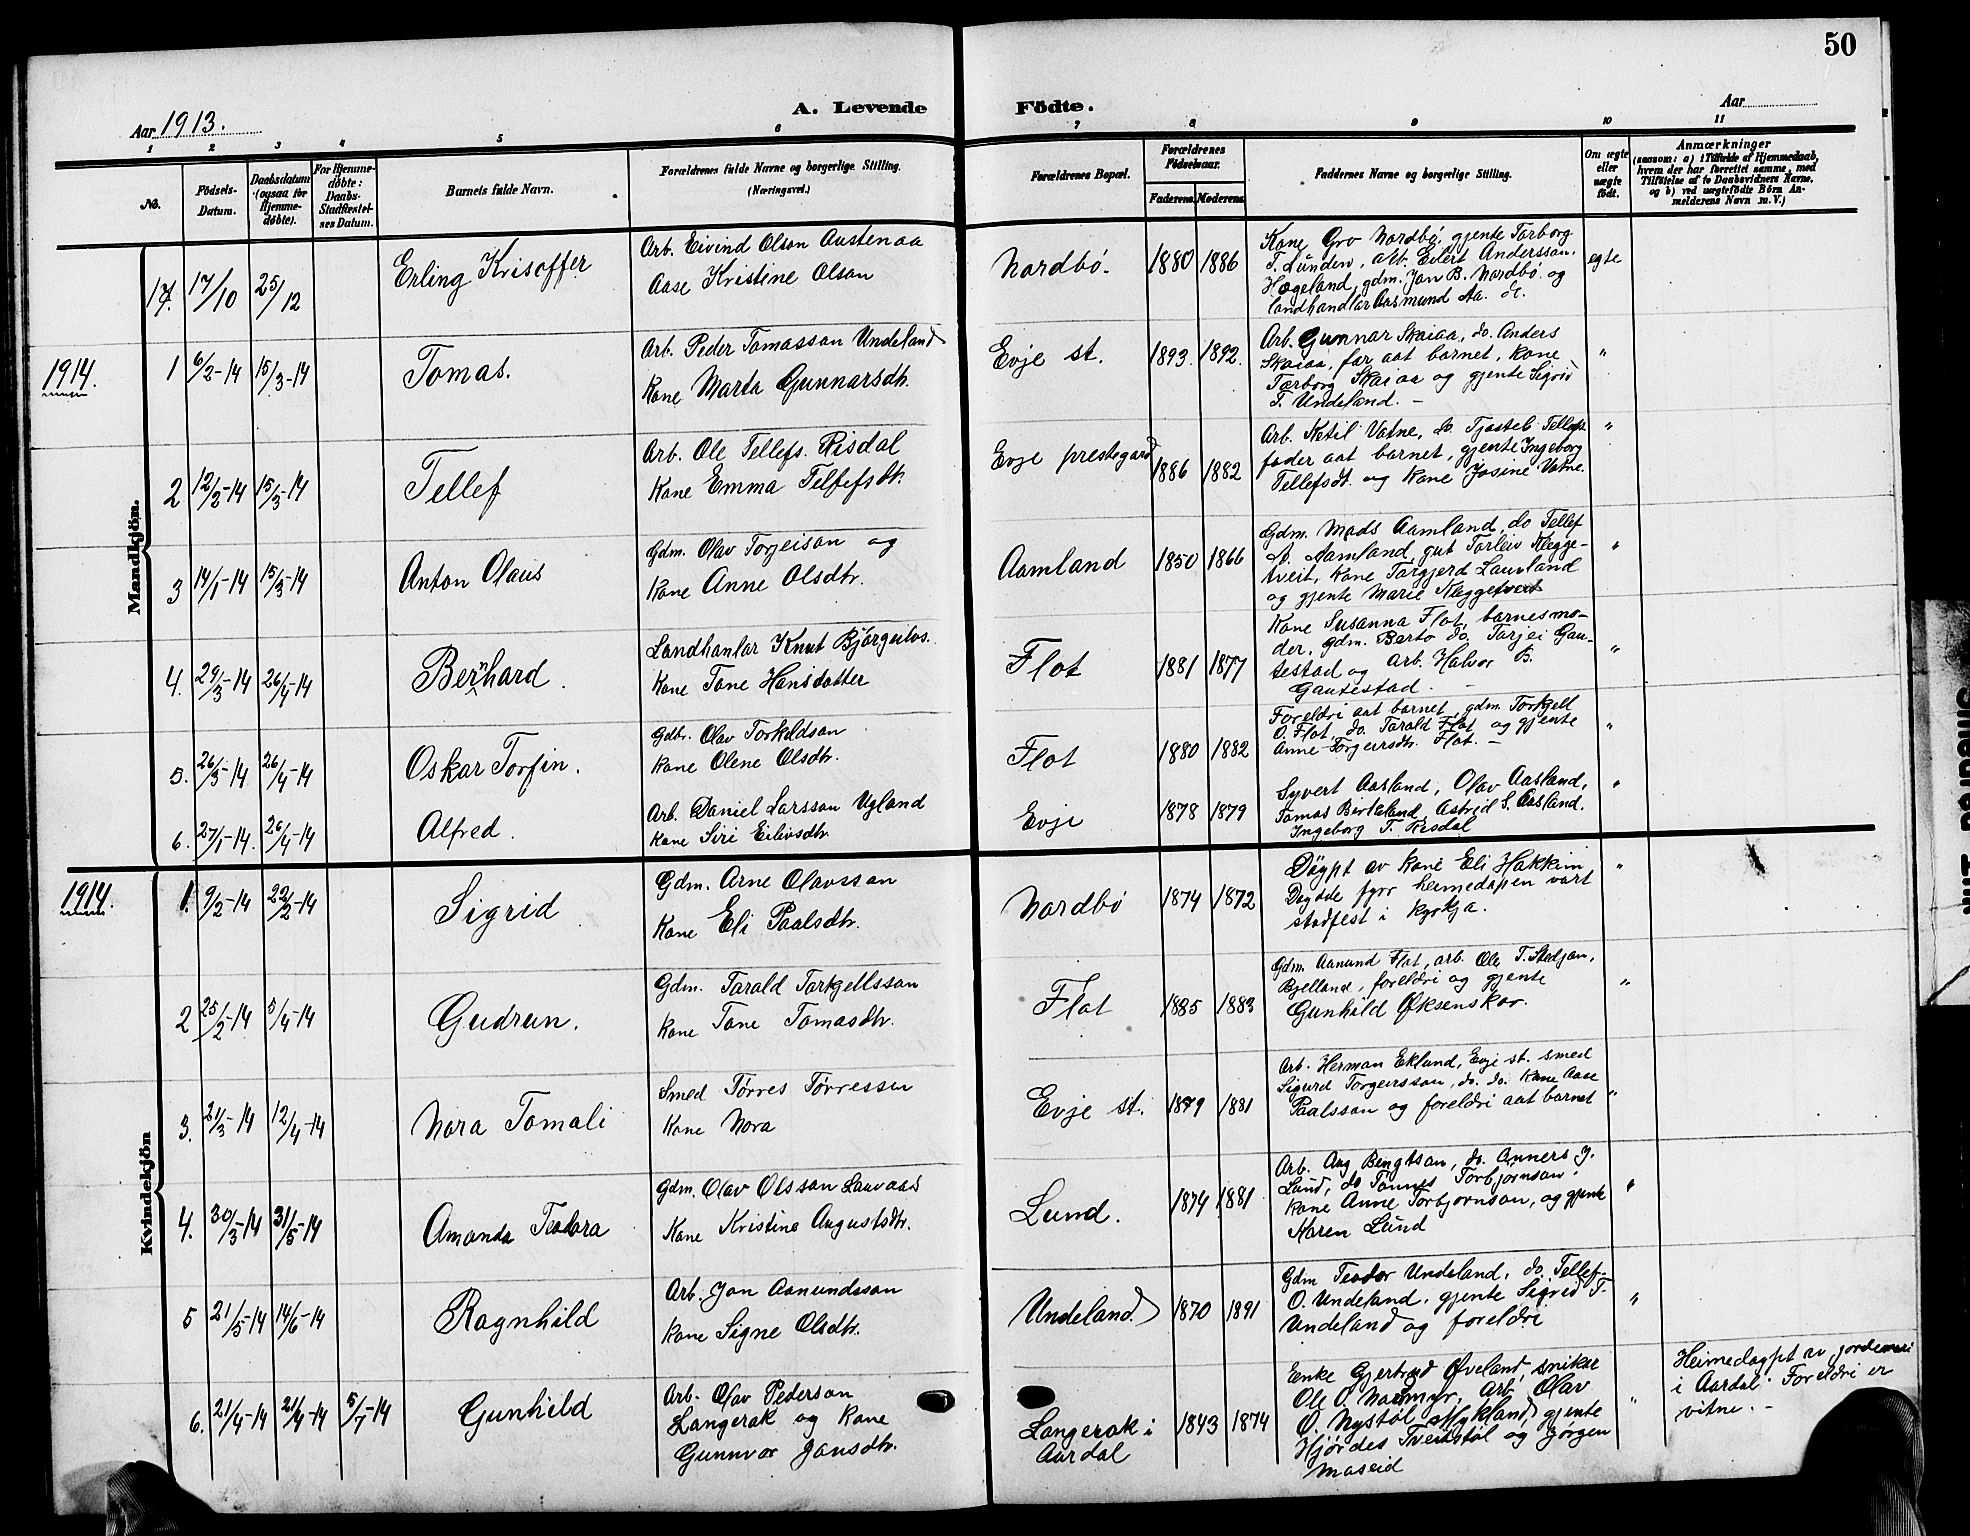 50
A. Levende Födte.
Aar 1913.
Aar
1 2 3 4 5 6 7 8 9 10 11
No.
Födsels-Datum.
Daabsdatum (ogsaa for Hjemme-döbte).
For Hjemme-döbte: Daabs-Stadfæstel-ses Datum.
Barnets fulde Navn.
Forældrenes fulde Navne og borgerlige Stilling. (Næringsvei.)
Forældrenes Bopæl.
Forældrenes Födselsaar.
Faderens. Moderens.
Faddernes Navne og borgerlige Stilling.
Om ægte eller uægte födt.
Anmærkninger
(saasom: a) i Tilfælde af Hjemmedaab, hvem der har forrettet samme, med Tilføielse af to Daabsvidners Navne, og b) ved uægtefödte Börn An-melderens Navn m. V.)
Mandkjön.
17. 17/10 25/12
Erling Krisoffer
Arb. Eivind Olson Austenaa
Aase Kristine Olson
Nordbö. 1880 1886
Kone Gro Nordbö, gjente Torborg
T. Lunden, arb. Edert Andersson,
Hægeland, gdm. Jon B. Nordbö og
landhandlar Aasmund Aa. dr.
egte
1914.
1 6/2-14 15/3-14
Tomas.
Arb. Peder Tomasson Undeland
Kone Marta Gunnarsdtr.
Evje st. 1893. 1892.
Arb. Gunnar Skaiaa, do. Anders
Skaiaa, far aat barnet, kone
Torborg Skaiaa og gjente Sigrid
T. Undeland. –
"
2 12/2-14 15/3-14
Tellef
Arb. Ole Tellefs. Risdal
Kone Emma Tellefsdtr.
Evje prestegard 1886 1882
Arb. Ketil Vatne, do. Tjostel Tellefs
fader aat barnet, gjente Ingeborg
Tellefsdt. og kone Josine Vatne.
"
3 14/1-14 15/3-14
Anton Olaus
Gdm. Olav Torjeison og
Kone Anne Olsdtr.
Aamland 1850 1866
Gdm. Mads Aamland, do Tellef
A. Aamland, gut Torleiv Klegge-
tveit, kone Torgjerd Lauvland
og gjente Marie Kleggetveit
"
4. 29/3-14 26/4-14
Bernhard.
Landhanlar Knut Bjørgulvs.
Kone Tone Hansdotter
Flot 1881 1877
Kone Susanna Flot, barnesmo-
der, gdm. Berto do. Tarjei Gau-
testad og arb. Halvor B.
Gautestad. –
"
5. 26/3-14 26/4-14
Oskar Torfin.
Gdbr. Olav Torkeldson
Kone Olene Olsdtr.
Flot 1880 1882
Foreldri aat barnet, gdm. Torkjell
O. Flot, do. Tarald Flot og gjente
Anne Torgeirsdtr. Flot. –
"
6. 27/1-14. 26/4-14
Alfred.
Arb. Daniel Larsson Ugland
Kone Siri Eilivsdtr.
Evje 1878 1879
Syvert Aasland, Olav Aasland,
Tomas Birkeland, Astrid S. Aasland.
Ingeborg T. Risdal
"
Kvindekjön
1914.
1. 9/2-14 22/2-14
Sigrid
Gdm. Arne Olavsson
Kone Eli Paalsdtr.
Nordbö 1874 1872
Döypt av kone Eli Hakkim
Dögde fyrr heimedopen vart
stadfest i kyrkja.
"
2 25/2-14 5/4-14
Gudrun.
Gdm. Tarald Torkjellsson
Kone Tone Tomasdtr.
Flot 1885 1883
Gdm. Aanund Flot, arb. Ole T. Stedjan,
Bjelland, foreldri og gjente
Gunhild Øksenskor.
"
3. 21/3-14 12/4-14
Nora Tomali
Smed Törres Törressen
Kone Nora
Evje st. 1879 1881
Arb. Herman Eklund, Evje st. smed
Sigurd Torgeirsson, do. do. kone Aase
Paalsson og foreldri aat barnet
"
4. 30/3-14 31/5-14
Amanda Teodora
Gdm. Olav Olsson Lauvaas
Kone Kristine Augustsdtr.
Lund. 1874 1881
Arb. Aug Bengtson, do. Anners J.
Lund, do Tönnes Torbjörnson.
kone Anne Torbjornson, og gjente
Karen Lund
"
5 21/5-14 14/6-14
Ragnhild
Arb. Jon Aanundsson
Kone Signe Olsdtr.
Undeland. 1870 1891
Gdm Teodor Undeland, do. Tellef
O. Undeland. gjente Sigrid T.
Undeland og foreldri
"
6. 21/4-14 21/4-14 5/7-14
Gunhild
Arb. Olav Pederson
Langerak og kone
Gunnvor Jonsdtr.
Langerak i
Aardal
1843 1874
Enke Gjertrud Øveland, snikar
Ole O. Nordmyr, Arb, Olav
O. Nystøl Mykland, gjente
Hjørdes Tveitstøl og Jørgen
Moseid
"
Heimedøypt av jordemori
i Aardal. Foreldri er
vitne. –